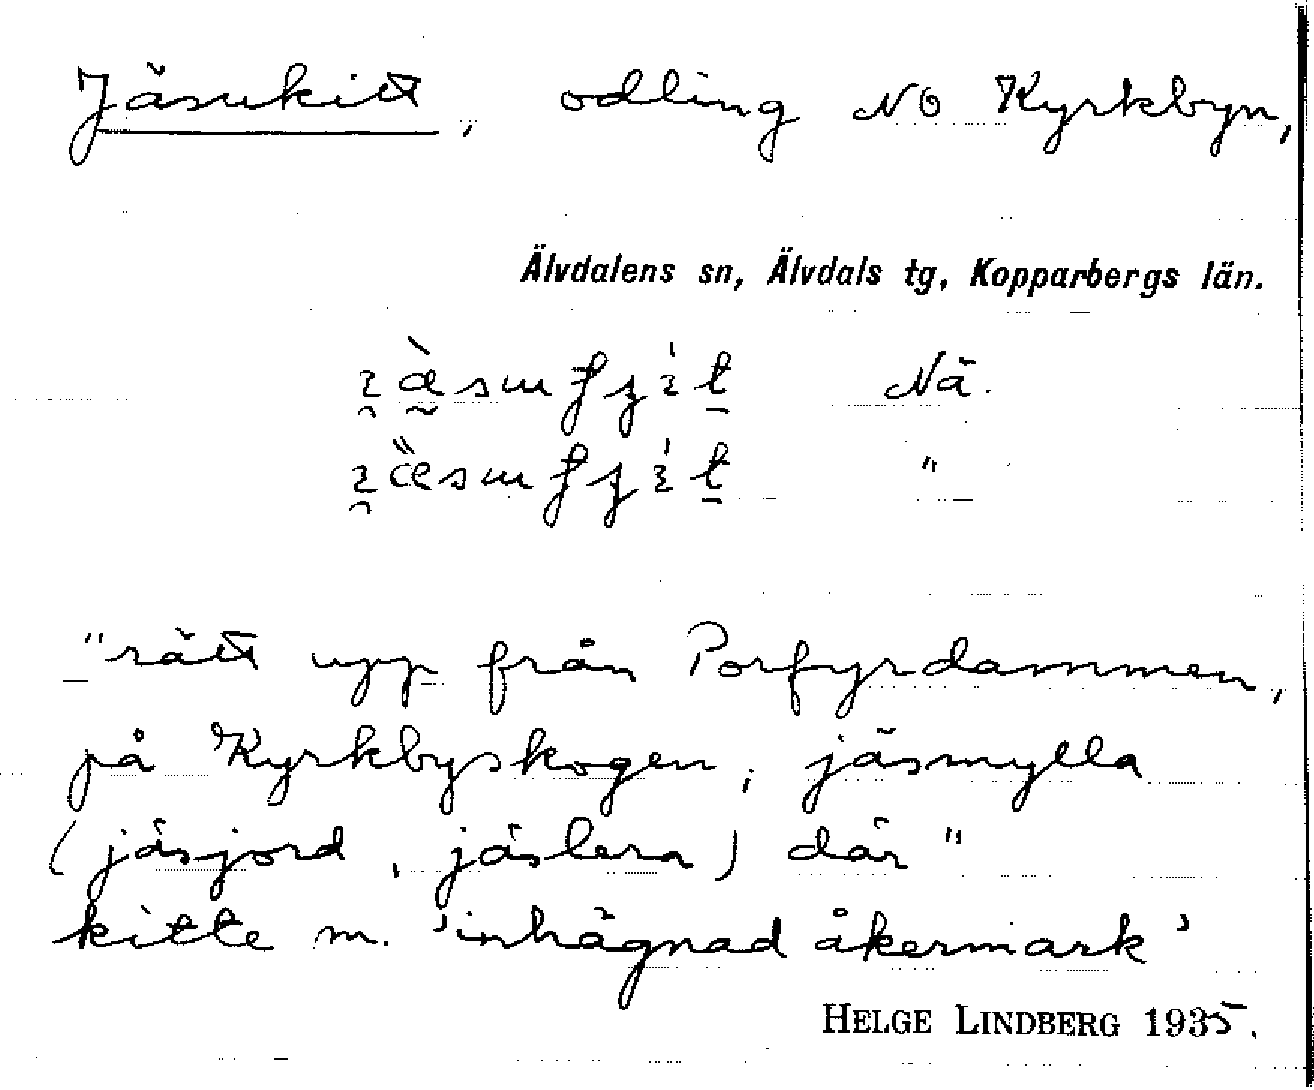 Jäsukitt, odling NO Kyrkbyn,
Älvdalens sn, Älvdals tg, Kopparbergs län.
Nä.
"
"rätt upp från Porfyrdammen,
på Kyrkbyskogen, jäsmylla
(jäsjord, jäslera) där"
kitte m. 'inhägnad åkermark'
HELGE LINDBERG 1935.